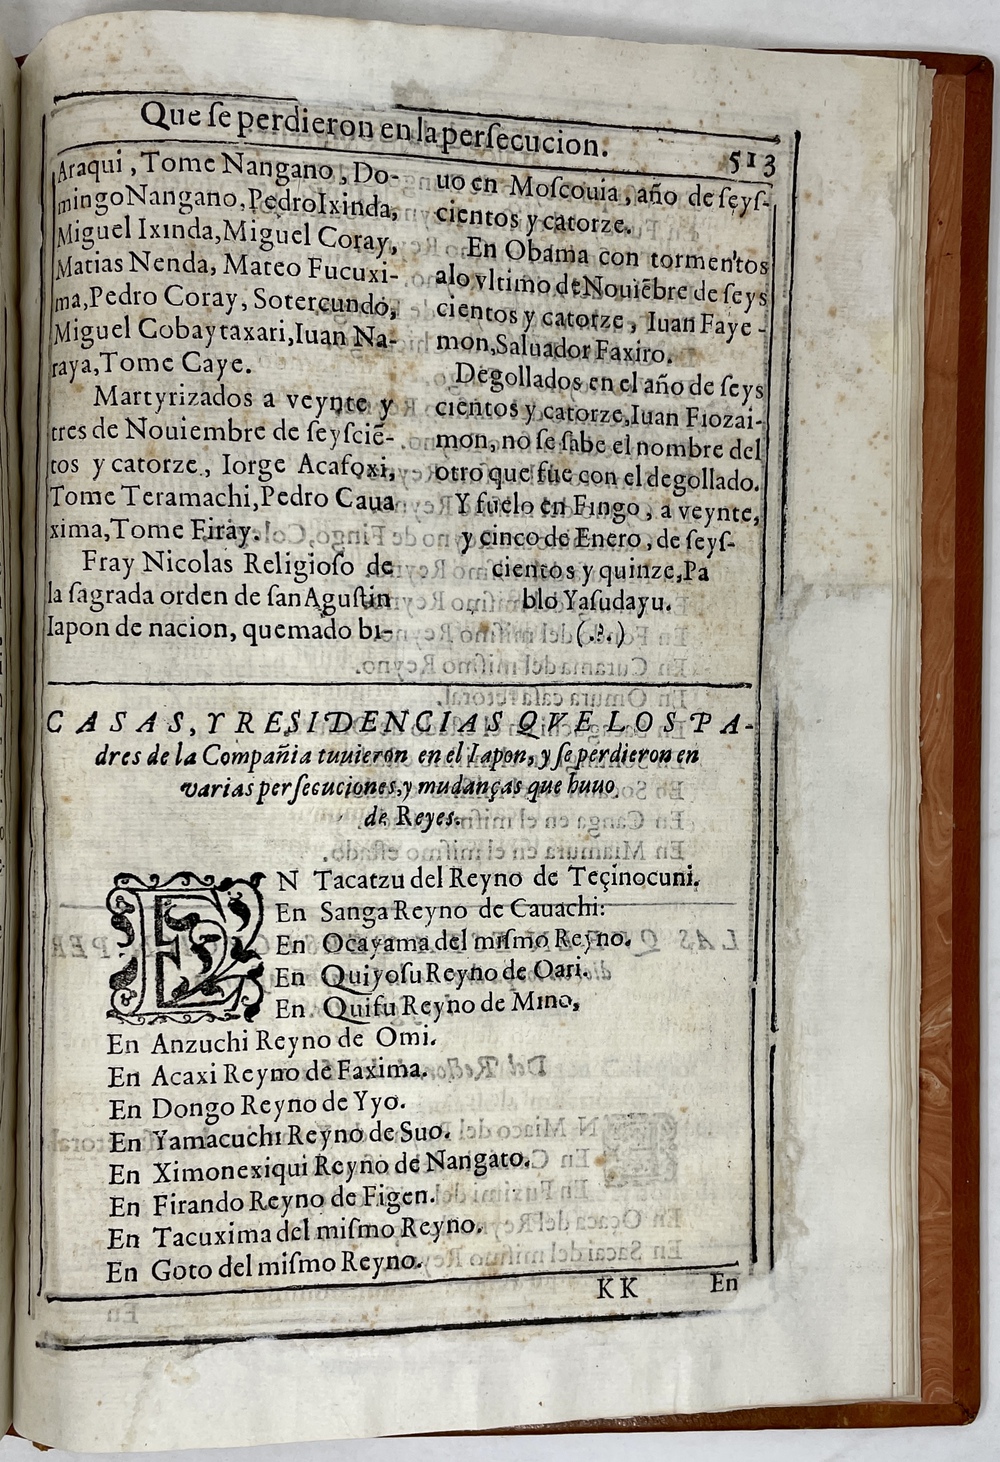 Que ſe perdieron en la perſecucion.
513
Araqui, Tome Nangano, Do-
mingo Nangano, Pedro Ixinda,
Miguel Ixinda, Miguel Coray,
Matias Nenda, Mateo Fucuxi-
ma, Pedro Coray, Sotercundo,
Miguel Cobaytaxari, Iuan Na-
raya, Tome Caye.
Martyrizados a veynte y
tres de Nouiembre de ſeyſciē-
tos y catorze, Iorge Acafoxi,
Tome Teramachi, Pedro Caua
xima, Tome Firay.
Fray Nicolas Religioſo de
la ſagrada orden de ſan Aguſtin
Iapon de nacion, quemado bi-
uo en Moſcouia, año de ſeyſ-
cientos y catorze.
En Obama con tormentos
alo vltimo de Nouiēbre de ſeys
cientos y catorze, Iuan Faye-
mon, Saluador Faxiro.
Degollados en el año de ſeys
cientos y catorze, Iuan Fiozai-
mon, no ſe ſabe el nombre del
otro que fue con el degollado.
Y fuelo en Fingo, a veynte,
y cinco de Enero, de ſeyſ-
cientos y quinze, Pa
blo Yaſudayu.
(.?.)
CASAS, Y RESIDENCIAS QVE LOS PA-
dres de la Compañia tuuieron en el Iapon, y ſe perdieron en
varias perſecuciones, y mudanças que huuo
de Reyes.
EN Tacatzu del Reyno de Teçinocuni.
En Sanga Reyno de Cauachi:
En Ocayama del miſmo Reyno.
En Quiyoſu Reyno de Oari.
En Quifu Reyno de Mino,
En Anzuchi Reyno de Omi.
En Acaxi Reyno de Faxima.
En Dongo Reyno de Yyo.
En Yamacuchi Reyno de Suo.
En Ximonexiqui Reyno de Nangato.
En Firando Reyno de Figen.
En Tacuxima del miſmo Reyno.
En Goto del miſmo Reyno.
KK
En